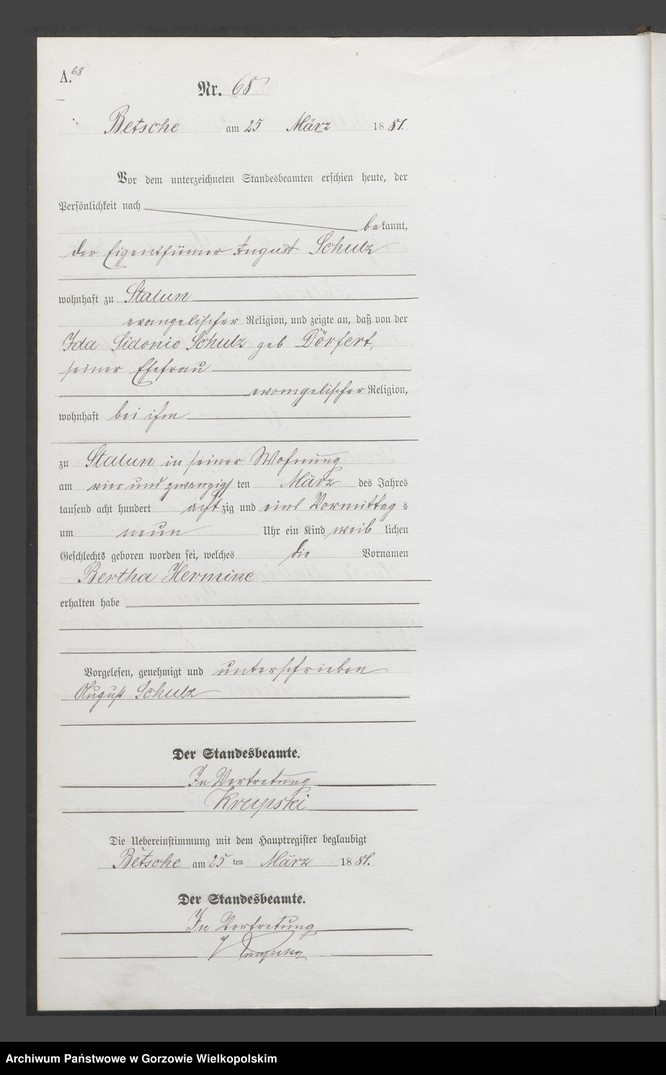 A. 68
Nr. 68
Betsche am 25 März 1881.
Vor dem unterzeichneten Standesbeamten erschien heute, der
Persönlichkeit nach
bekannt,
der Eigenthümer August Schulz
wohnhaft zu Stalun
evangelischer Religion, und zeigte an, daß von der
Ida Sidonie Schulz geb Dörfert,
seiner Ehefrau
evangelischer Religion,
wohnhaft bei ihm
zu Stalun in seiner Wohnung
am vier und zwanzigsten März des Jahres
tausend acht hundert achtzig und eins Vormittags
um neun Uhr ein Kind weiblichen
Geschlechts geboren worden sei, welches die Vornamen
Bertha Hermine
erhalten habe
Vorgelesen, genehmigt und unterschrieben
August Schulz
Der Standesbeamte.
In Vertretung
Krupski
Die Uebereinstimmung mit dem Hauptregister beglaubigt
Betsche am 25 ten März 1881.
Der Standesbeamte.
In Vertretung
Archiwum Państwowe w Gorzowie Wielkopolskim